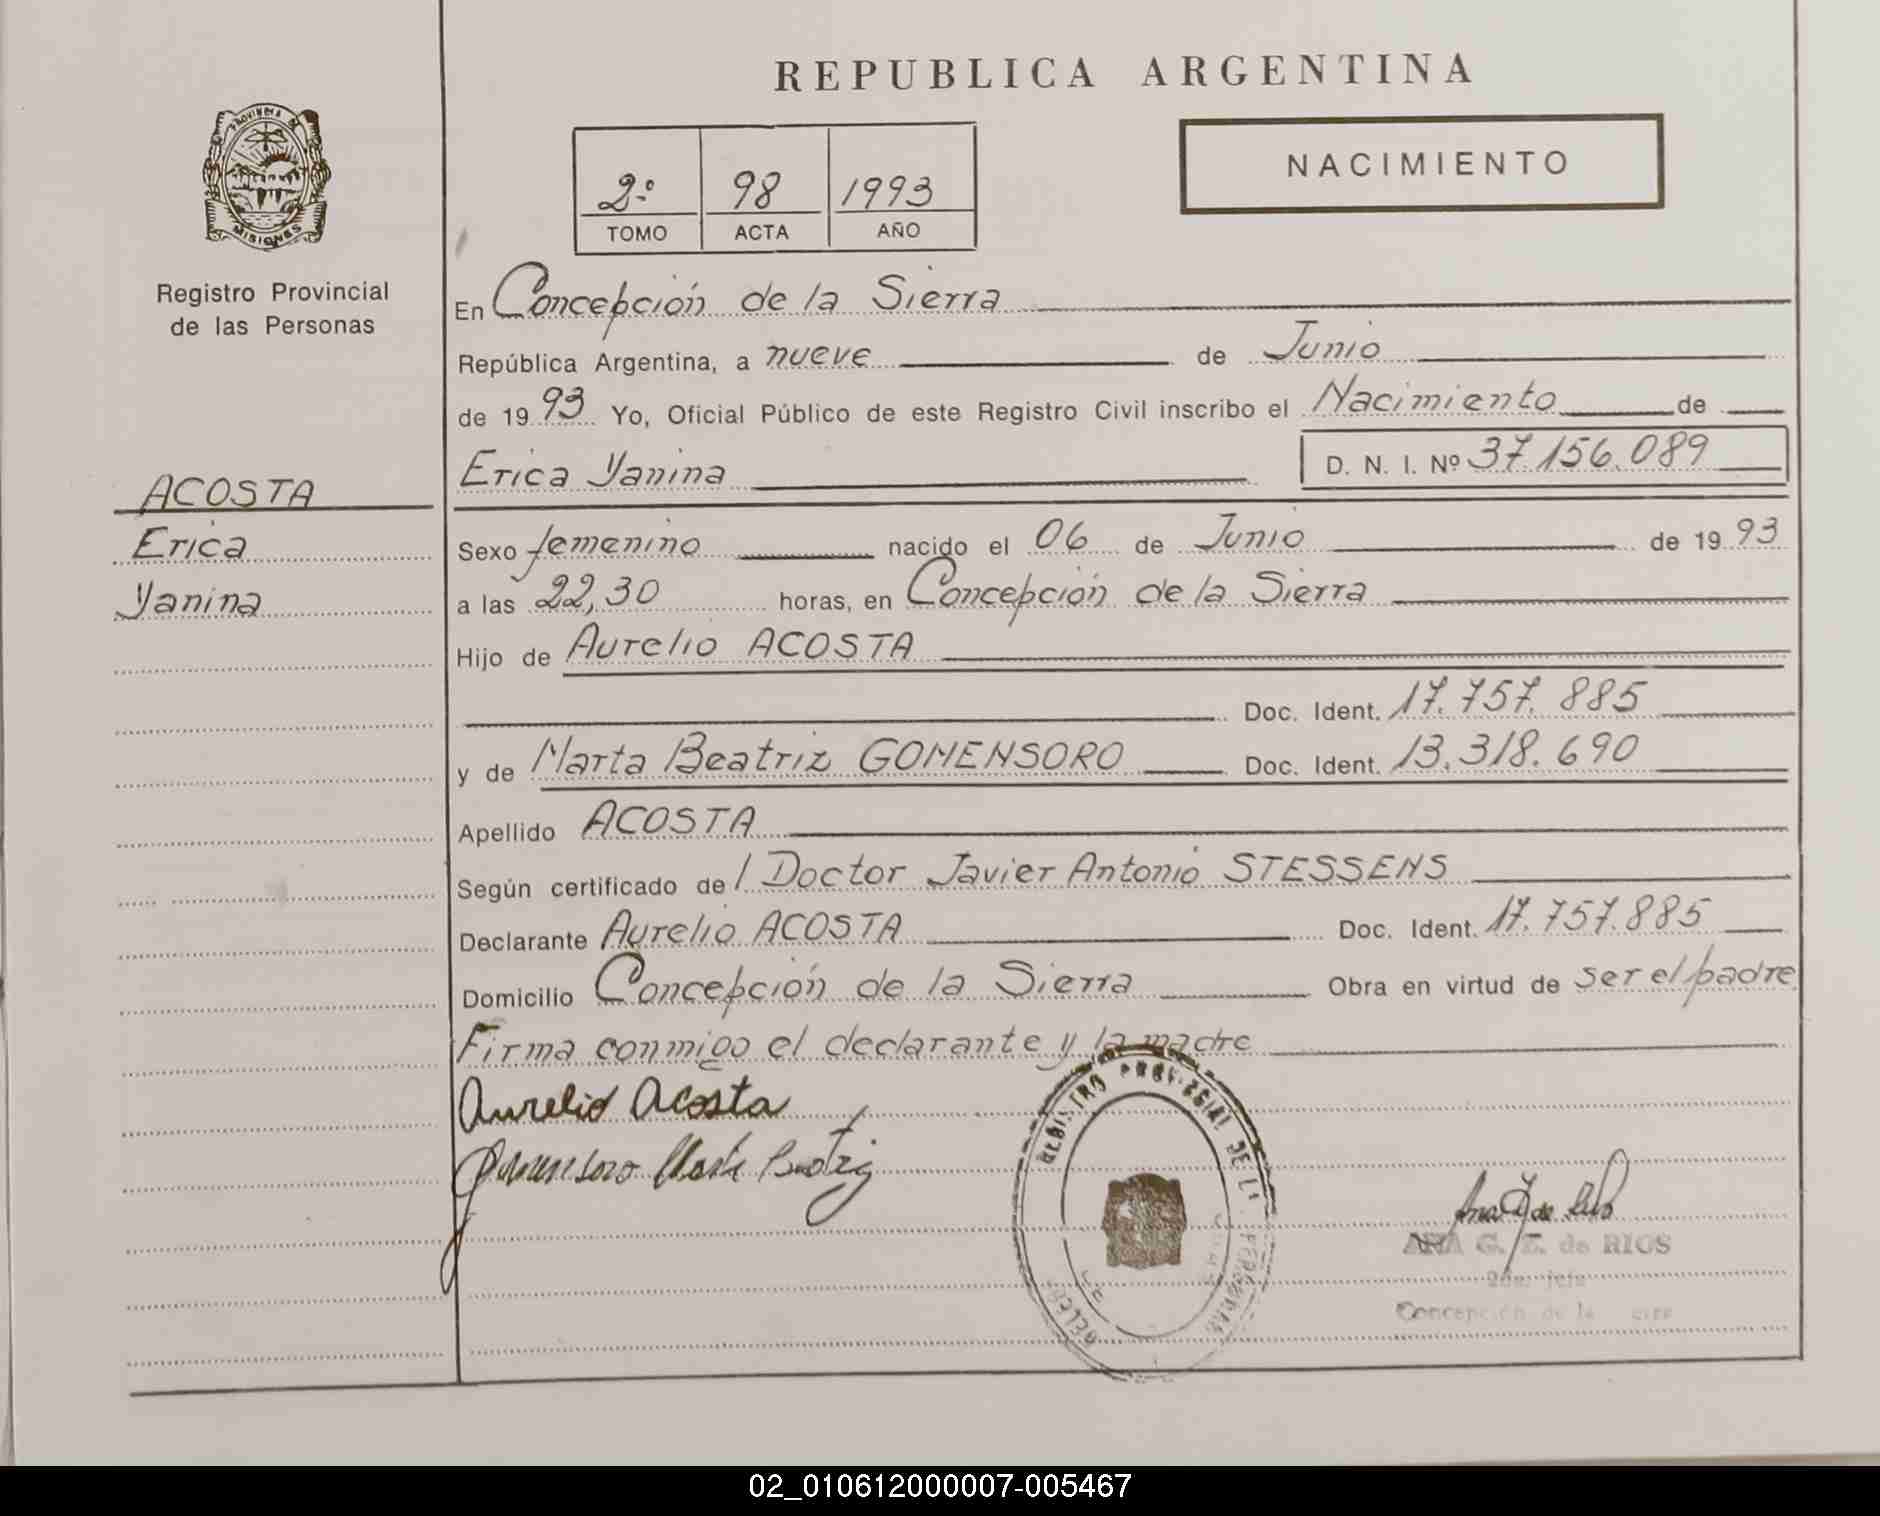 REPUBLICA ARGENTINA
PROVINCIA DE
MISIONES
Registro Provincial
de las Personas
2º 98 1993
TOMO ACTA AÑO
NACIMIENTO
En Concepción de la Sierra
República Argentina, a nueve de Junio
de 1993 Yo, Oficial Público de este Registro Civil inscribo el Nacimiento de
Erica Yanina D. N. I. Nº 37.156.089
ACOSTA
Erica
Yanina
Sexo femenino nacido el 06 de Junio de 1993
a las 22,30 horas, en Concepción de la Sierra
Hijo de Aurelio ACOSTA
Doc. Ident. 17.757.885
y de Marta Beatriz GOMENSORO Doc. Ident. 13.318.690
Apellido ACOSTA
Según certificado de l Doctor Javier Antonio STESSENS
Declarante Aurelio ACOSTA Doc. Ident. 17.757.885
Domicilio Concepción de la Sierra Obra en virtud de ser el padre
Firma conmigo el declarante y la madre
Aurelio Acosta
Gomensoro Marta Beatriz
REGISTRO PROVINCIAL DE L PERSONAS
Ana Z de Rios
ANA G. Z. de RIOS
Concepción de la
02_010612000007-005467